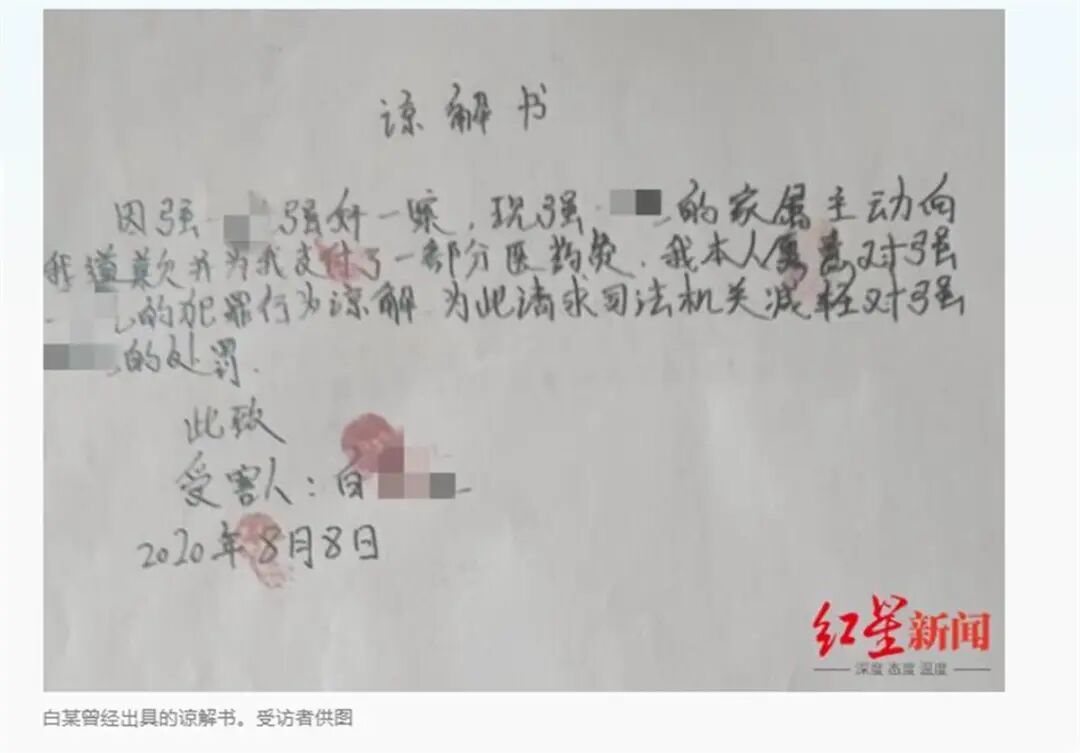 谅解书
因强 强奸一案，现强 的家属主动向
我道歉并为我支付了一部分医药费，我本人愿意对强
的犯罪行为谅解，为此请求司法机关减轻对强
的处罚.
此致
受害人：白
2020年8月8日
红星新闻
深度 态度 温度
白某曾经出具的谅解书。受访者供图